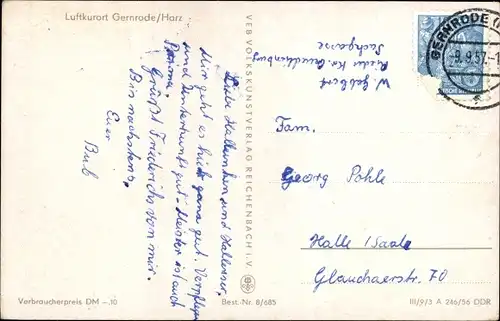 Luftkurort Gernrode/Harz
Liebe Hallenser und Hallenser,
Mir geht es hier ganz gut. Verpfleg.
und Unterkunft gut. Meister ist auch
Prima.
Grüßt Friederichs von mir.
Bis nächstens.
Euer
Bub
VEB VOLKSKUNSTVERLAG REICHENBACH i. V.
W. Gebbert
Rieder Krs. Quedlinburg
Sackgasse
GERNRODE (
9.9.57.-1
Fam.
Georg Pohle
Halle/Saale
Glauchaerstr. 70
Verbraucherpreis DM -.10
Best.-Nr. 8/685
III/9/3 A 246/56 DDR